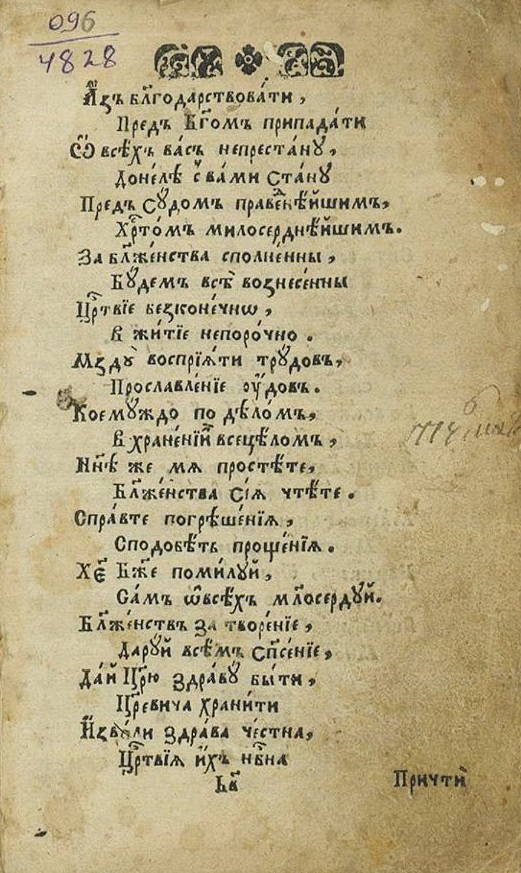 096
4828
А҆́зъ бл҃годарствова́ти,
Предъ Бг҃омъ припада́ти
Ѿ всѣ́хъ ва́съ непреста́ну,
До́нелѣ с̾ ва́ми ста́ну
Предъ Сꙋдо́мъ пра́веⷣнѣйшимъ,
Хрⷭ҇то́мъ милосерднѣ́йшимъ.
За бл҃же́нства сполне́нны,
Бꙋ́демъ всѣ̀ вознесе́нны
Црⷭ҇твїе безконе́чнѡ,
В житїѐ непоро́чно.
Мздꙋ̀ воспрїѧ́ти трꙋдо́въ,
Прославле́нїе оу҆́довъ.
Коемꙋ́ждо по дѣло́мъ,
В хране́нїи всецѣ́ломъ,
Нн҃ѣ же мѧ просте́те,
Бл҃же́нства сїѧ̀ чте́те.
Спра́вте погрѣше́нїѧ,
Сподо́бѣтъ проще́нїѧ.
Хрⷭ҇тѐ Бж҃е поми́лꙋй,
Са́мъ ѡ҆ всѣ́хъ млⷭ҇осе́рдꙋй.
Бл҃же́нствъ за творе́нїе,
Да́рꙋй всѣ́мъ сп҃се́нїе,
Да́й Цр҃ю̀ здра́вꙋ бы́ти,
Цр҃е́вича храни́ти
И҆зво́ли здра́ва че́стна,
Црⷭ҇твїѧ и҆́хъ нбⷭ҇на
Причтѝ